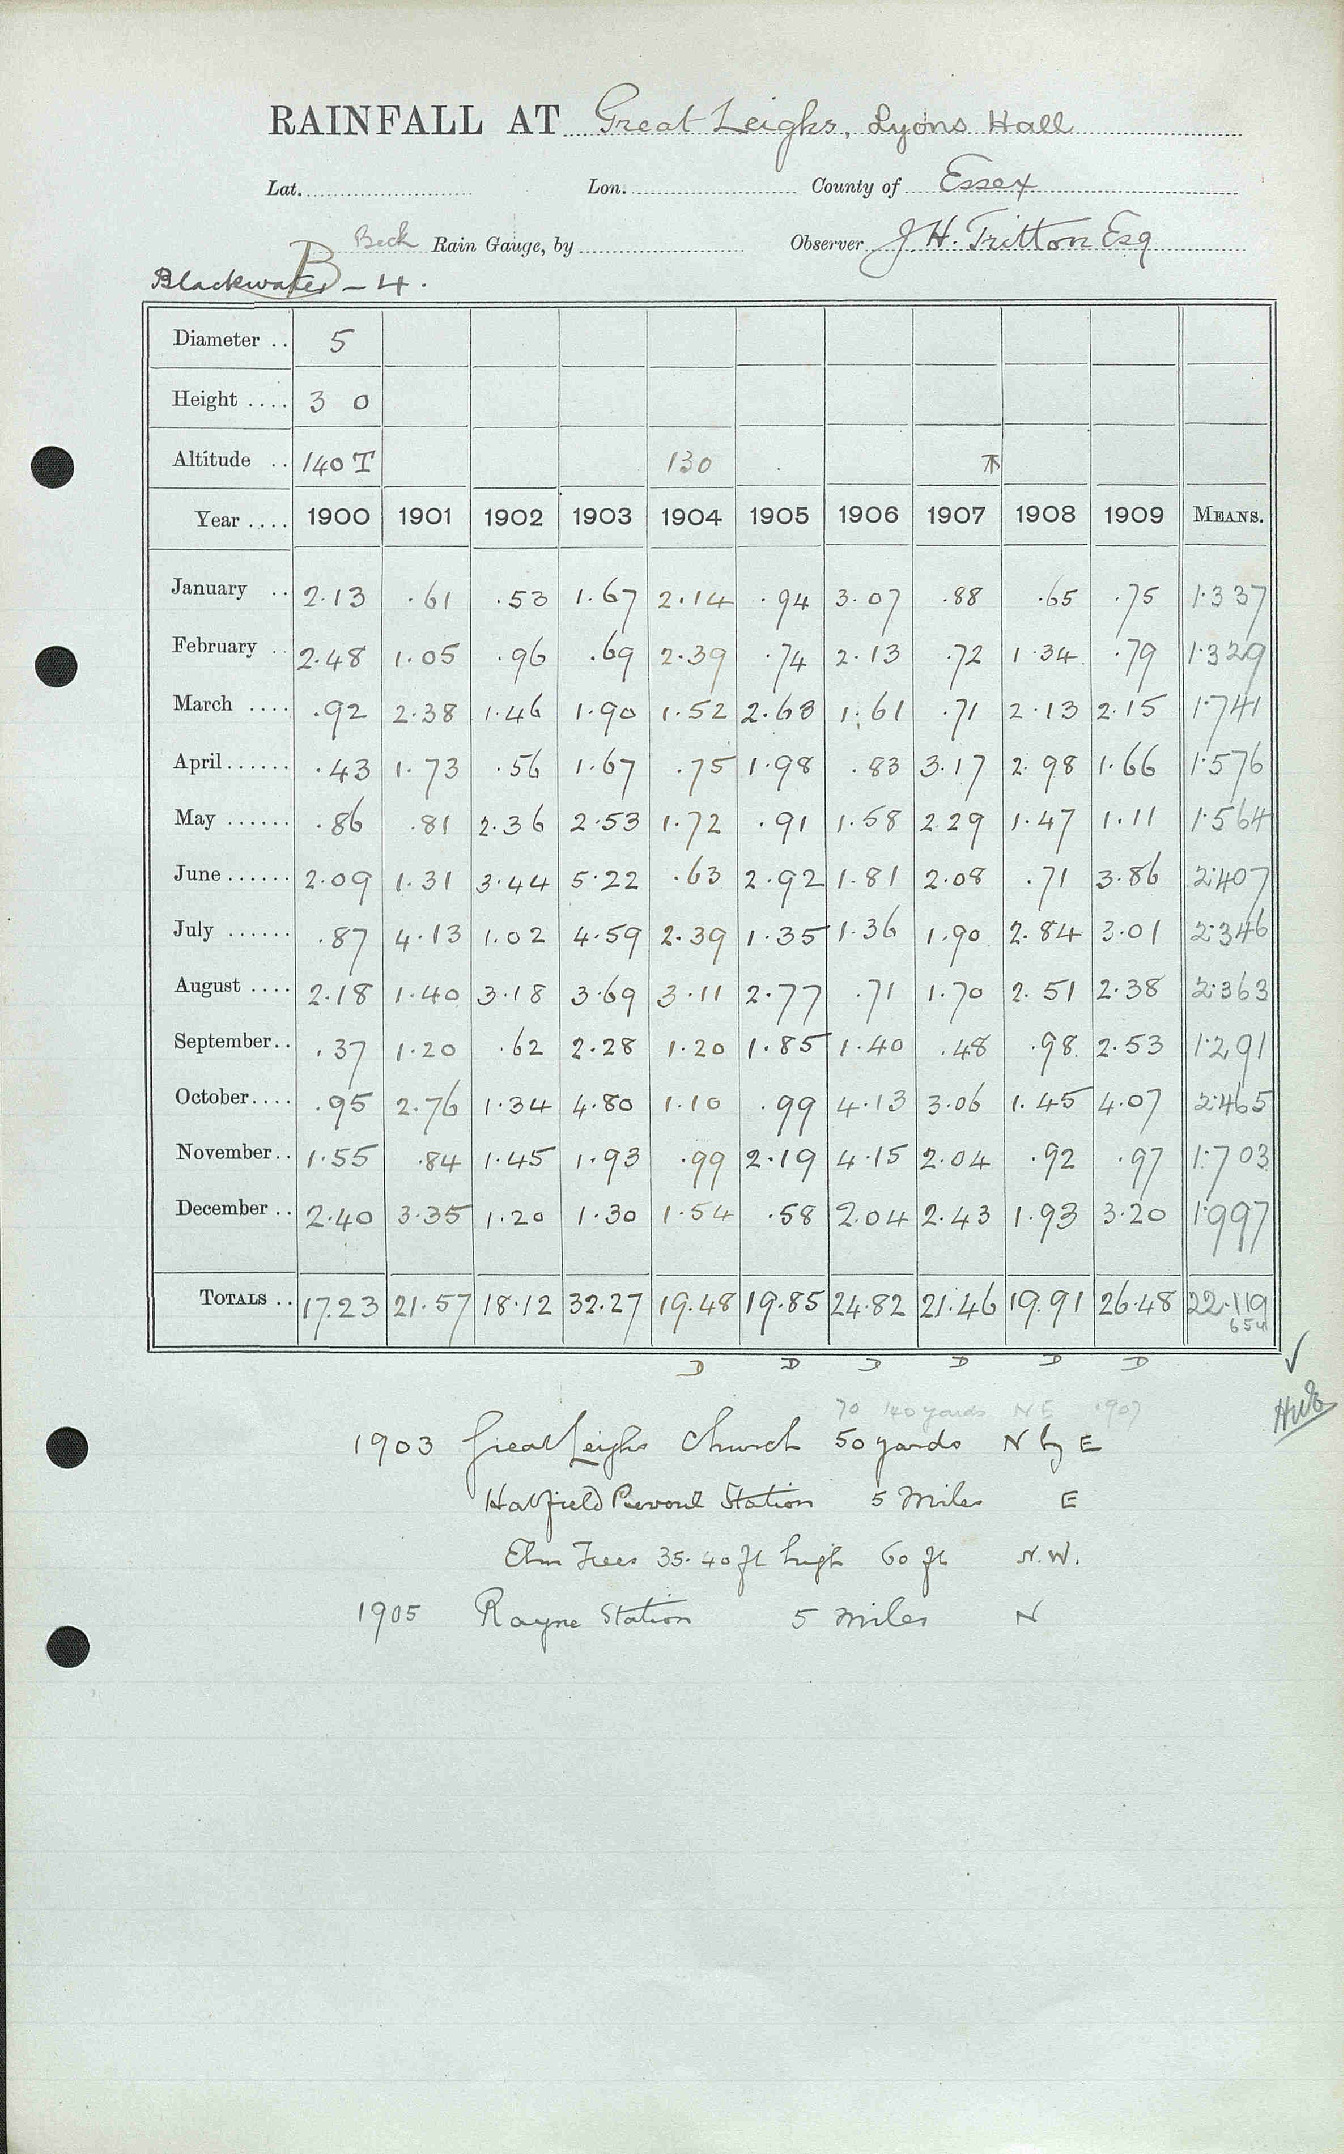 RAINFALL AT Great Leighs, Lyons Hall
Lat. Lon. County of Essex
Beck Rain Gauge, by Observer J H. Tritton Esq
B
Blackwater - 4.
Diameter .. 5
Height .... 3 0
Altitude .. 140 T 130 T
Year .... 1900 1901 1902 1903 1904 1905 1906 1907 1908 1909 MEANS.
January .. 2.13 .61 .53 1.67 2.14 .94 3.07 .88 .65 .75 1.337
February .. 2.48 1.05 .96 .69 2.39 .74 2.13 .72 1.34 .79 1.329
March .... .92 2.38 1.46 1.90 1.52 2.63 1.61 .71 2.13 2.15 1.741
April...... .43 1.73 .56 1.67 .75 1.98 .83 3.17 2.98 1.66 1.576
May ...... .86 .81 2.36 2.53 1.72 .91 1.58 2.29 1.47 1.11 1.564
June ...... 2.09 1.31 3.44 5.22 .63 2.92 1.81 2.08 .71 3.86 2.407
July ...... .87 4.13 1.02 4.59 2.39 1.35 1.36 1.90 2.84 3.01 2.346
August .... 2.18 1.40 3.18 3.69 3.11 2.77 .71 1.70 2.51 2.38 2.363
September.. .37 1.20 .62 2.28 1.20 1.85 1.40 .48 .98 2.53 1.291
October.... .95 2.76 1.34 4.80 1.10 .99 4.13 3.06 1.45 4.07 2.465
November.. 1.55 .84 1.45 1.93 .99 2.19 4.15 2.04 .92 .97 1.703
December .. 2.40 3.35 1.20 1.30 1.54 .58 2.04 2.43 1.93 3.20 1.997
TOTALS .. 17.23 21.57 18.12 32.27 19.48 19.85 24.82 21.46 19.91 26.48 22.119
654
D D D D D D
70 140 yards N E 1907
1903 Great Leighs Church 50 yards N by E
Hatfield Peverel Station 5 Miles E
Elm Trees 35-40 ft high 60 ft N.W.
1905 Rayne Station 5 miles N